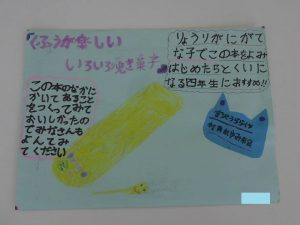 くふうが楽しい
いろいろ焼き菓子
りょうりがにがて
な子でこの本をよみ
はじめたらとくいに
なる四年生におすすめ!!
この本のなかに
かいてあること
をつくってみて
おいしかったの
でみなさんも
よんでみ
てください